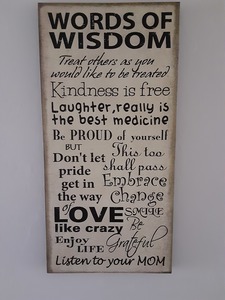 WORDS OF
WISDOM
Treat others as you
would like to be treated
Kindness is free
Laughter, really is
the best medicine
Be PROUD of yourself
BUT
Don't let
pride
get in
the way
This too
shall pass
Embrace
Change
OF
LOVE
like crazy
SMILE
Be
Grateful
Enjoy
LIFE
Listen to your MOM